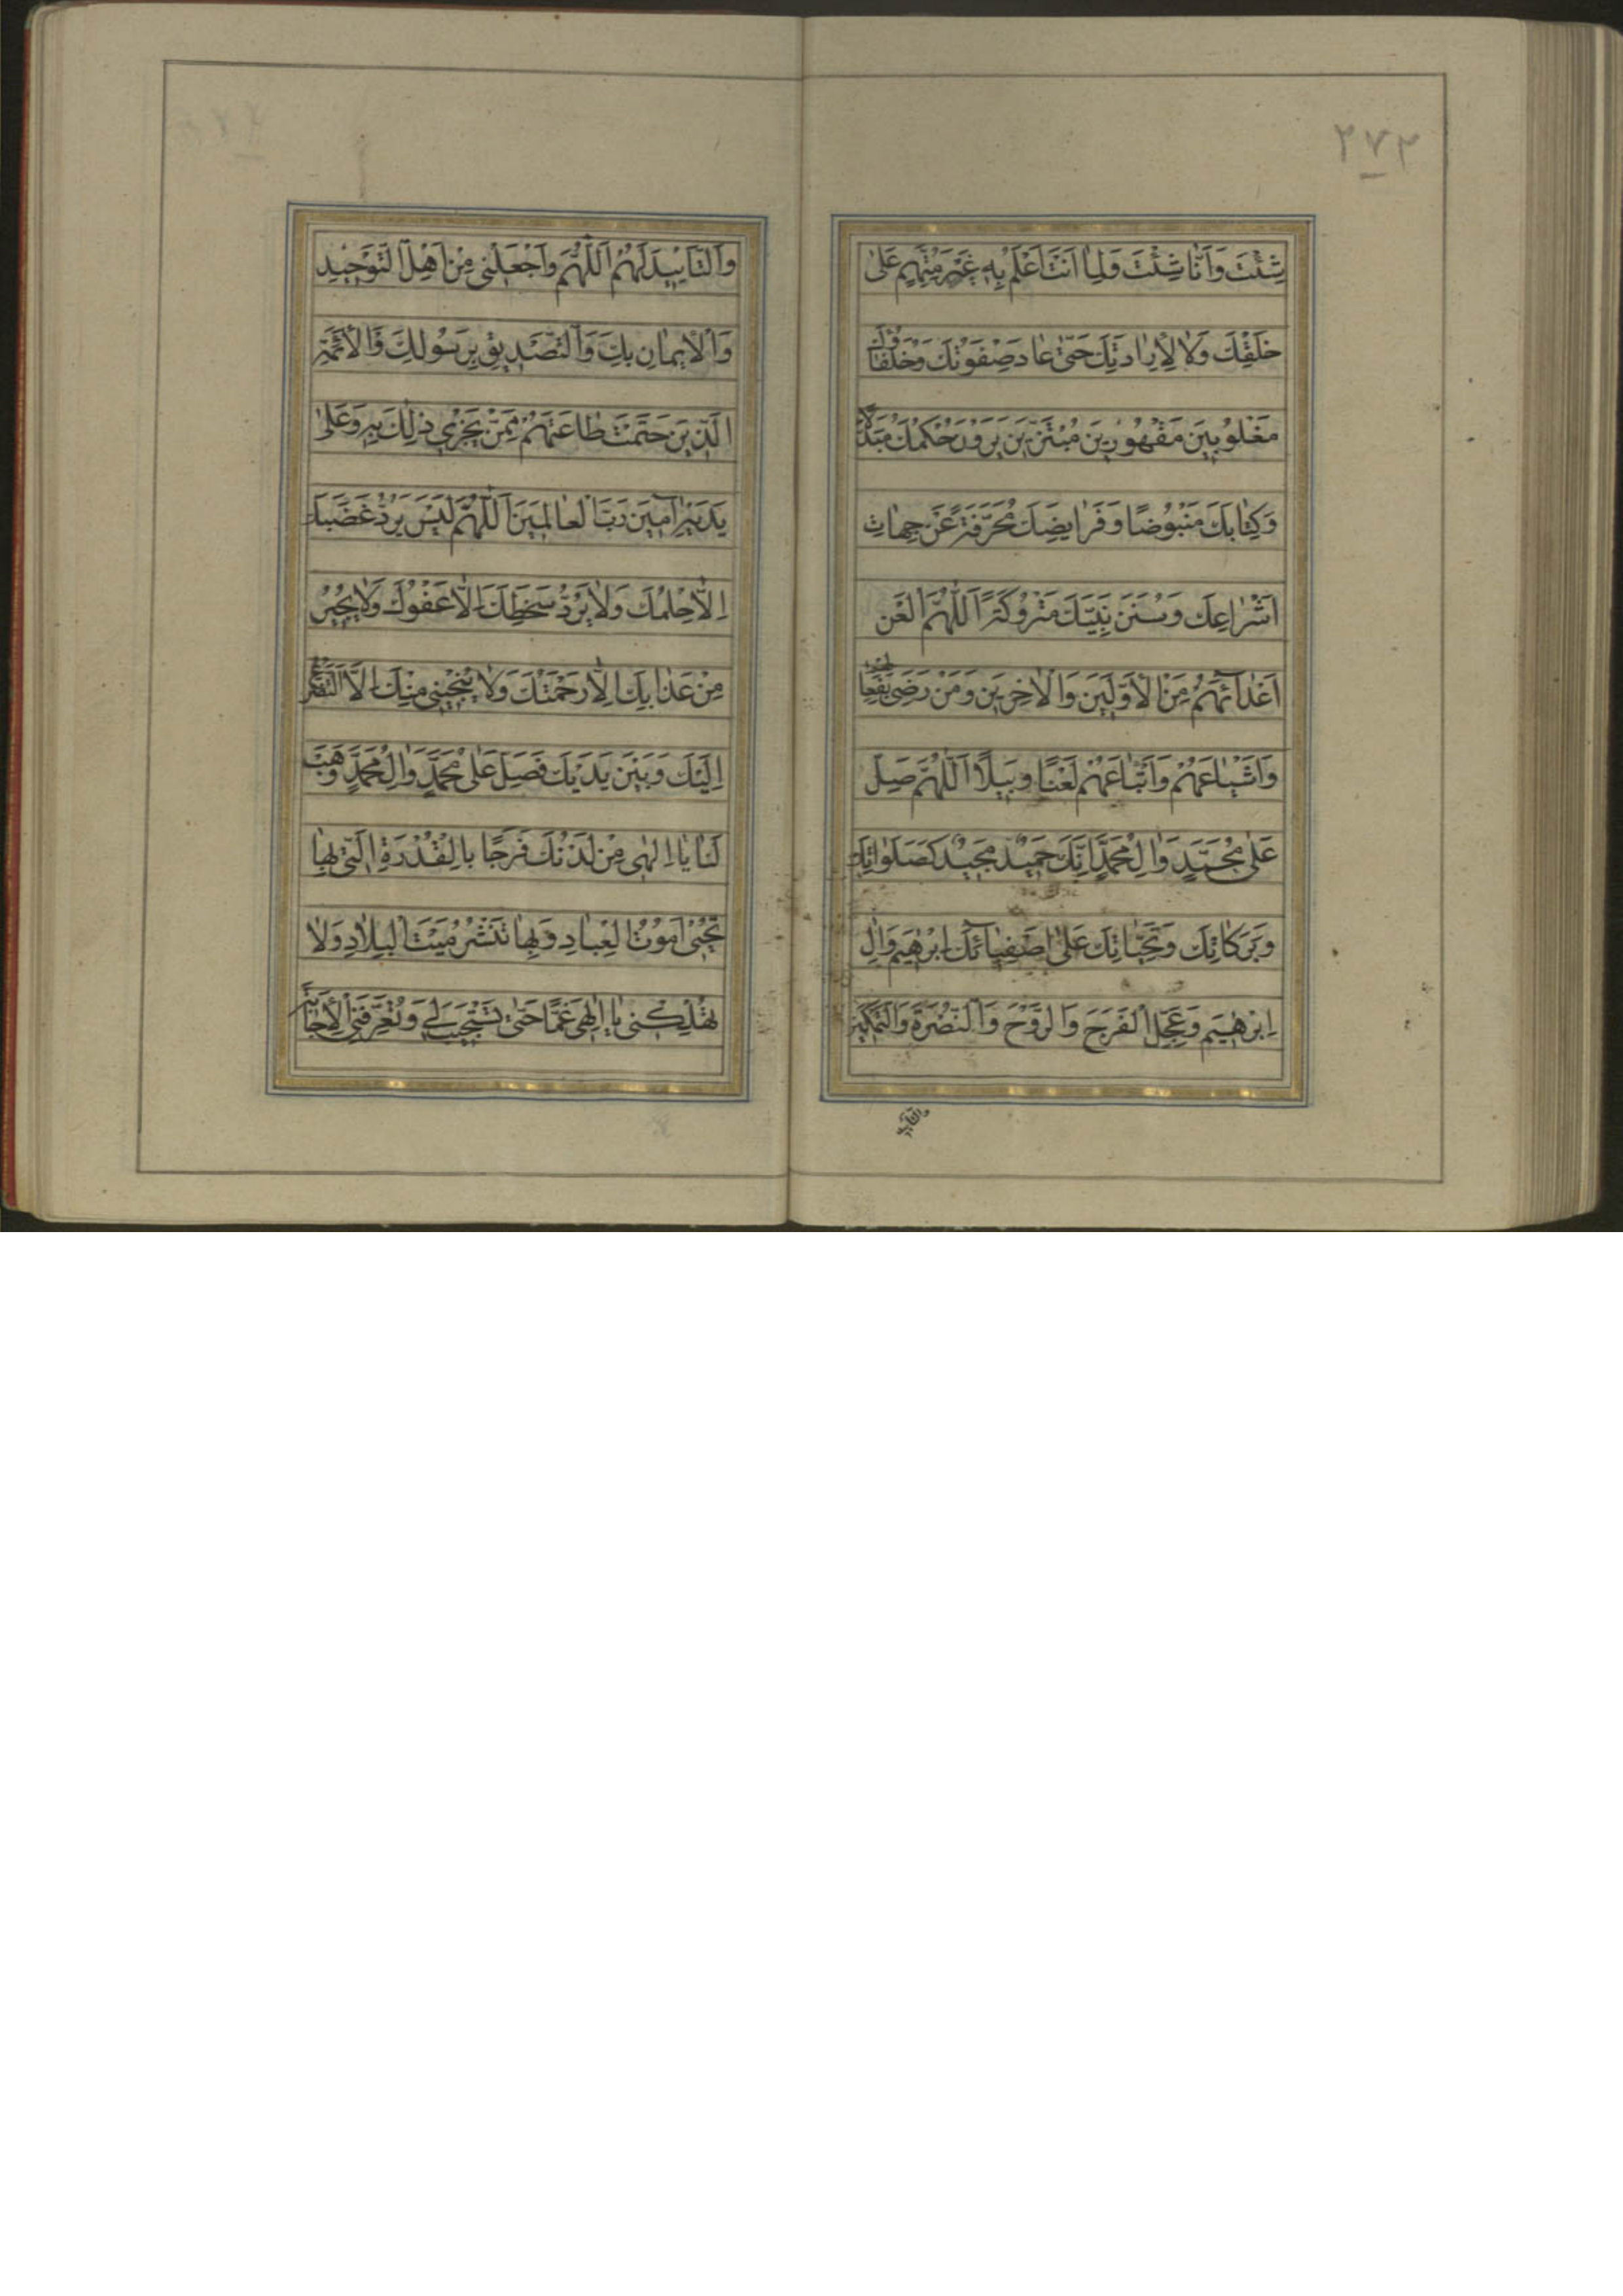 ٢٧٢
شِئْتَ وَاَنّٰا شِئْتَ وَلِمٰا اَنْتَ اَعْلَمُ بِهِ غَيْرَ مُتَّهَمٍ عَلىٰ
خَلْقِكَ وَلٰا لِاِرٰادَتِكَ حَتّىٰ عٰادَ صَفْوَتُكَ وَخُلَفٰاؤُكَ
مَغْلُوبِينَ مَقْهُورِينَ مُبْتَزِّينَ يَرَوْنَ حُكْمَكَ مُبَدَّلًا
وَكِتٰابَكَ مَنْبُوضًا وَفَرٰايِضَكَ مُحَرَّفَةً عَنْ جِهٰاتِ
اَشْرٰاعِكَ وَسُنَنَ نَبِيِّكَ مَتْرُوكَةً اَللّٰهُمَّ الْعَنْ
اَعْدٰآئَهُمْ مِنَ الْاَوَّلِينَ وَالْاٰخِرِينَ وَمَنْ رَضِىَ بِفَعٰالِهِمْ
وَاَشْيٰاعَهُمْ وَاَتْبٰاعَهُمْ لَعْنًا وَبِيلًا اَللّٰهُمَّ صَلِّ
عَلىٰ مُحَمَّدٍ وَاٰلِ مُحَمَّدٍ اِنَّكَ حَمِيدٌ مَجِيدٌ كَصَلَوٰاتِكَ
وَبَرَكٰاتِكَ وَتَحِيّٰاتِكَ عَلىٰ اَصْفِيٰآئِكَ اِبْرٰهِيمَ وَاٰلِ
اِبْرٰهِيمَ وَعَجِّلِ الْفَرَجَ وَالرَّوْحَ وَالنُّصْرَةَ وَالتَّمْكِينَ
والتأييد
وَالتَّاْيِيدَ لَهُمْ اَللّٰهُمَّ وَاجْعَلْنِى مِنْ اَهْلِ التَّوْحِيدِ
وَالْاِيمٰانِ بِكَ وَالتَّصْدِيقِ بِرَسُولِكَ وَالْاَئِمَّةِ
الَّذِينَ حَتَمْتَ طٰاعَتَهُمْ مِمَّنْ يَجْرِي ذٰلِكَ بِهِ وَعَلىٰ
يَدَيْهِ اٰمِينَ رَبَّ الْعٰالَمِينَ اَللّٰهُمَّ لَيْسَ يَرُدُّ غَضَبَكَ
اِلّٰا حِلْمُكَ وَلٰا يَرُدُّ سَخَطَكَ اِلّٰا عَفْوُكَ وَلٰا يُجِيرُ
مِنْ عَذٰابِكَ اِلّٰا رَحْمَتُكَ وَلٰا يُنْجِينِى مِنْكَ اِلَّا التَّضَرُّعُ
اِلَيْكَ وَبَيْنَ يَدَيْكَ فَصَلِّ عَلىٰ مُحَمَّدٍ وَاٰلِ مُحَمَّدٍ وَهَبْ
لَنٰا يٰا اِلٰهِى مِنْ لَدُنْكَ فَرَجًا بِالْقُدْرَةِ الَّتِى بِهٰا
تُحْيِى اَمْوٰاتَ الْعِبٰادِ وَبِهٰا تَنْشُرُ مَيْتَ الْبِلٰادِ وَلٰا
تُهْلِكْنِى يٰا اِلٰهِى غَمًّا حَتّىٰ تَسْتَجِيبَ لِي وَتُعَرِّفَنِى الْاِجٰابَةَ